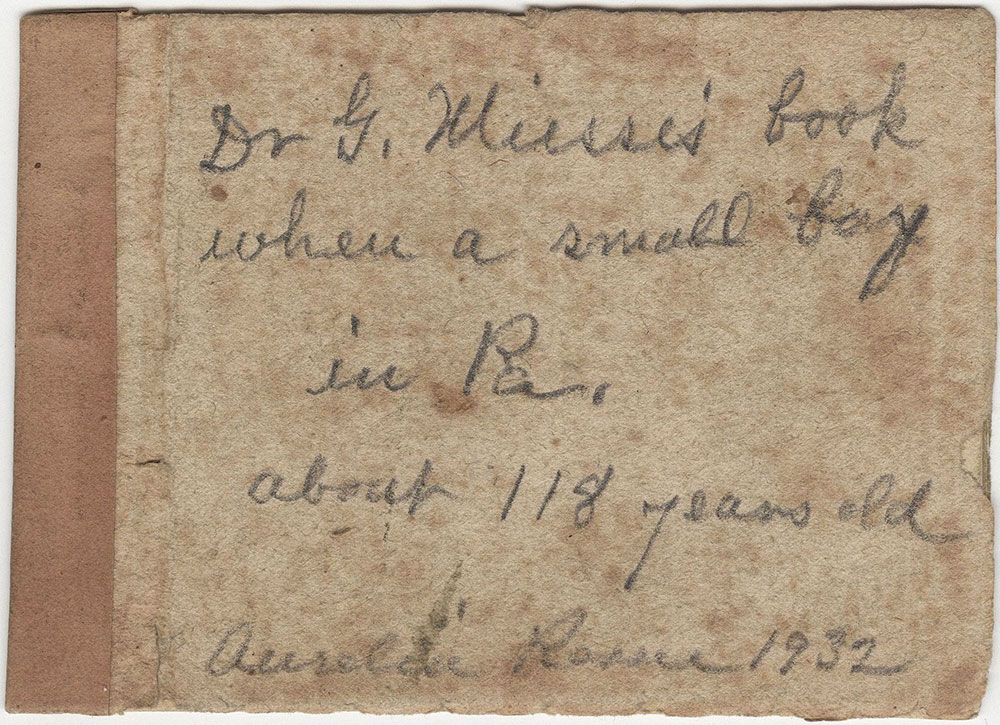 Dr G. Miesse's book
when a small boy
in Pa.
about 118 years old
Aurelia 1932